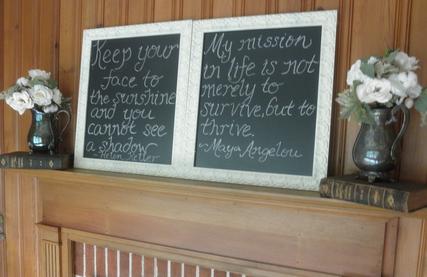 Keep your
face to
the sunshine
and you
cannot see
a shadow
~ Helen Keller
My mission
in life is not
merely to
survive, but to
thrive.
~Maya Angelou